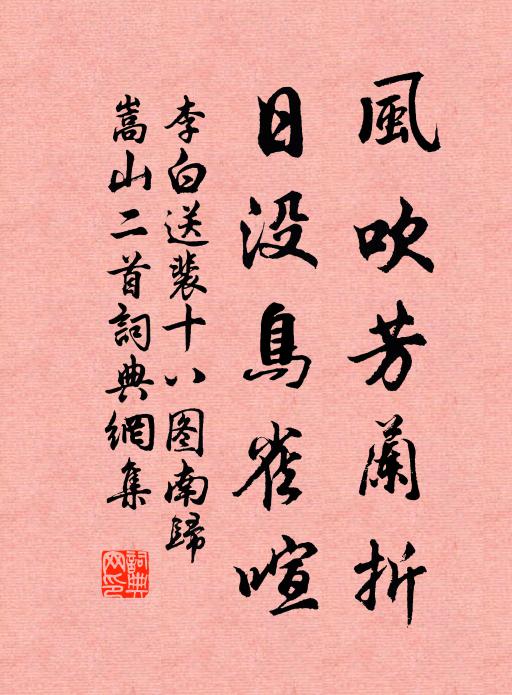 風吹芳蘭折
日没鳥雀喧
李白送裴十八图南歸
嵩山二首詞典網集
詞典
网印